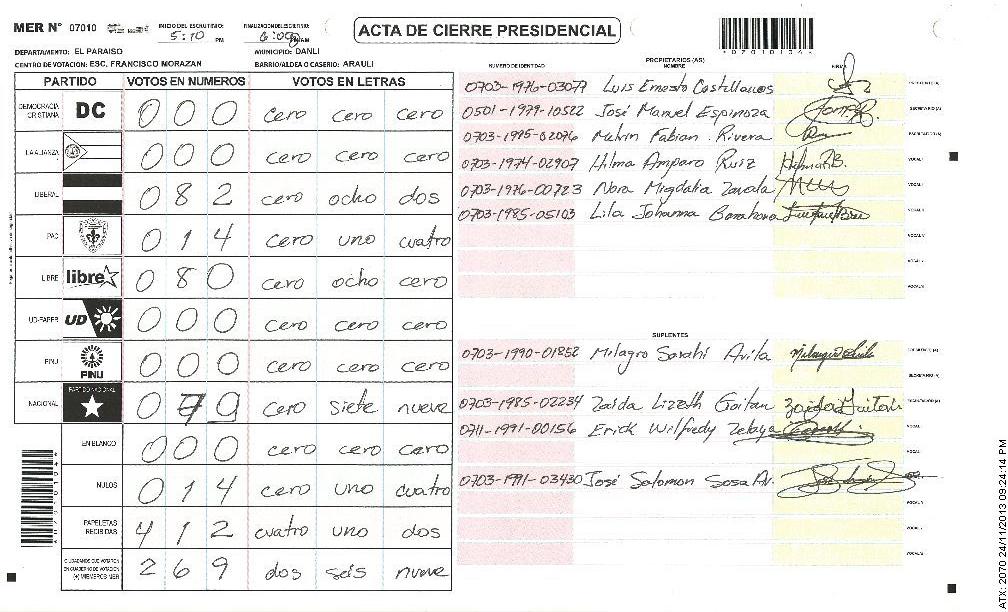 MER Nº 07010
INICIO DEL ESCRUTINIO: 5:10 PM
FINALIZACION DEL ESCRUTINIO: 6:00 PM
ACTA DE CIERRE PRESIDENCIAL
DEPARTAMENTO: EL PARAISO MUNICIPIO: DANLI
CENTRO DE VOTACION: ESC. FRANCISCO MORAZAN BARRIO/ALDEA O CASERIO: ARAULI
PARTIDO VOTOS EN NUMEROS VOTOS EN LETRAS
DEMOCRACIA CRISTIANA DC 0 0 0 cero cero cero
LA ALIANZA 0 0 0 cero cero cero
LIBERAL 0 8 2 cero ocho dos
PAC 0 1 4 cero uno cuatro
LIBRE libre 0 8 0 cero ocho cero
UD-FAPER UD 0 0 0 cero cero cero
PINU PINU 0 0 0 cero cero cero
NACIONAL PARTIDO NACIONAL 0 7 9 cero siete nueve
EN BLANCO 0 0 0 cero cero cero
NULOS 0 1 4 cero uno cuatro
PAPELETAS RECIBIDAS 4 1 2 cuatro uno dos
CIUDADANOS QUE VOTARON EN CUADERNO DE VOTACION (+) MIEMBROS MER 2 6 9 dos seis nueve
PROPIETARIOS (AS)
NUMERO DE IDENTIDAD NOMBRE FIRMA
0703-1976-03077 Luis Ernesto Castellanos PRESIDENTE (A)
0501-1979-10522 José Manuel Espinoza SECRETARIO (A)
0703-1985-02076 Melvin Fabian Rivera ESCRUTADOR (A)
0703-1974-02907 Hilma Amparo Ruiz VOCAL I
0703-1976-00723 Nora Migdalia Zavala
0703-1985-05103 Lila Johanna Barahona
SUPLENTES
0703-1990-01852 Milagro Sarahi Avila PRESIDENTE (A)
SECRETARIO (A)
0703-1985-02234 Zaida Lizeth Gaitan ESCRUTADOR (A)
0711-1991-00156 Erick Wilfredy Zelaya
0703-1991-03430 José Salomon Sosa Av.
ATX: 2070 24/11/2013 09:24:14 PM